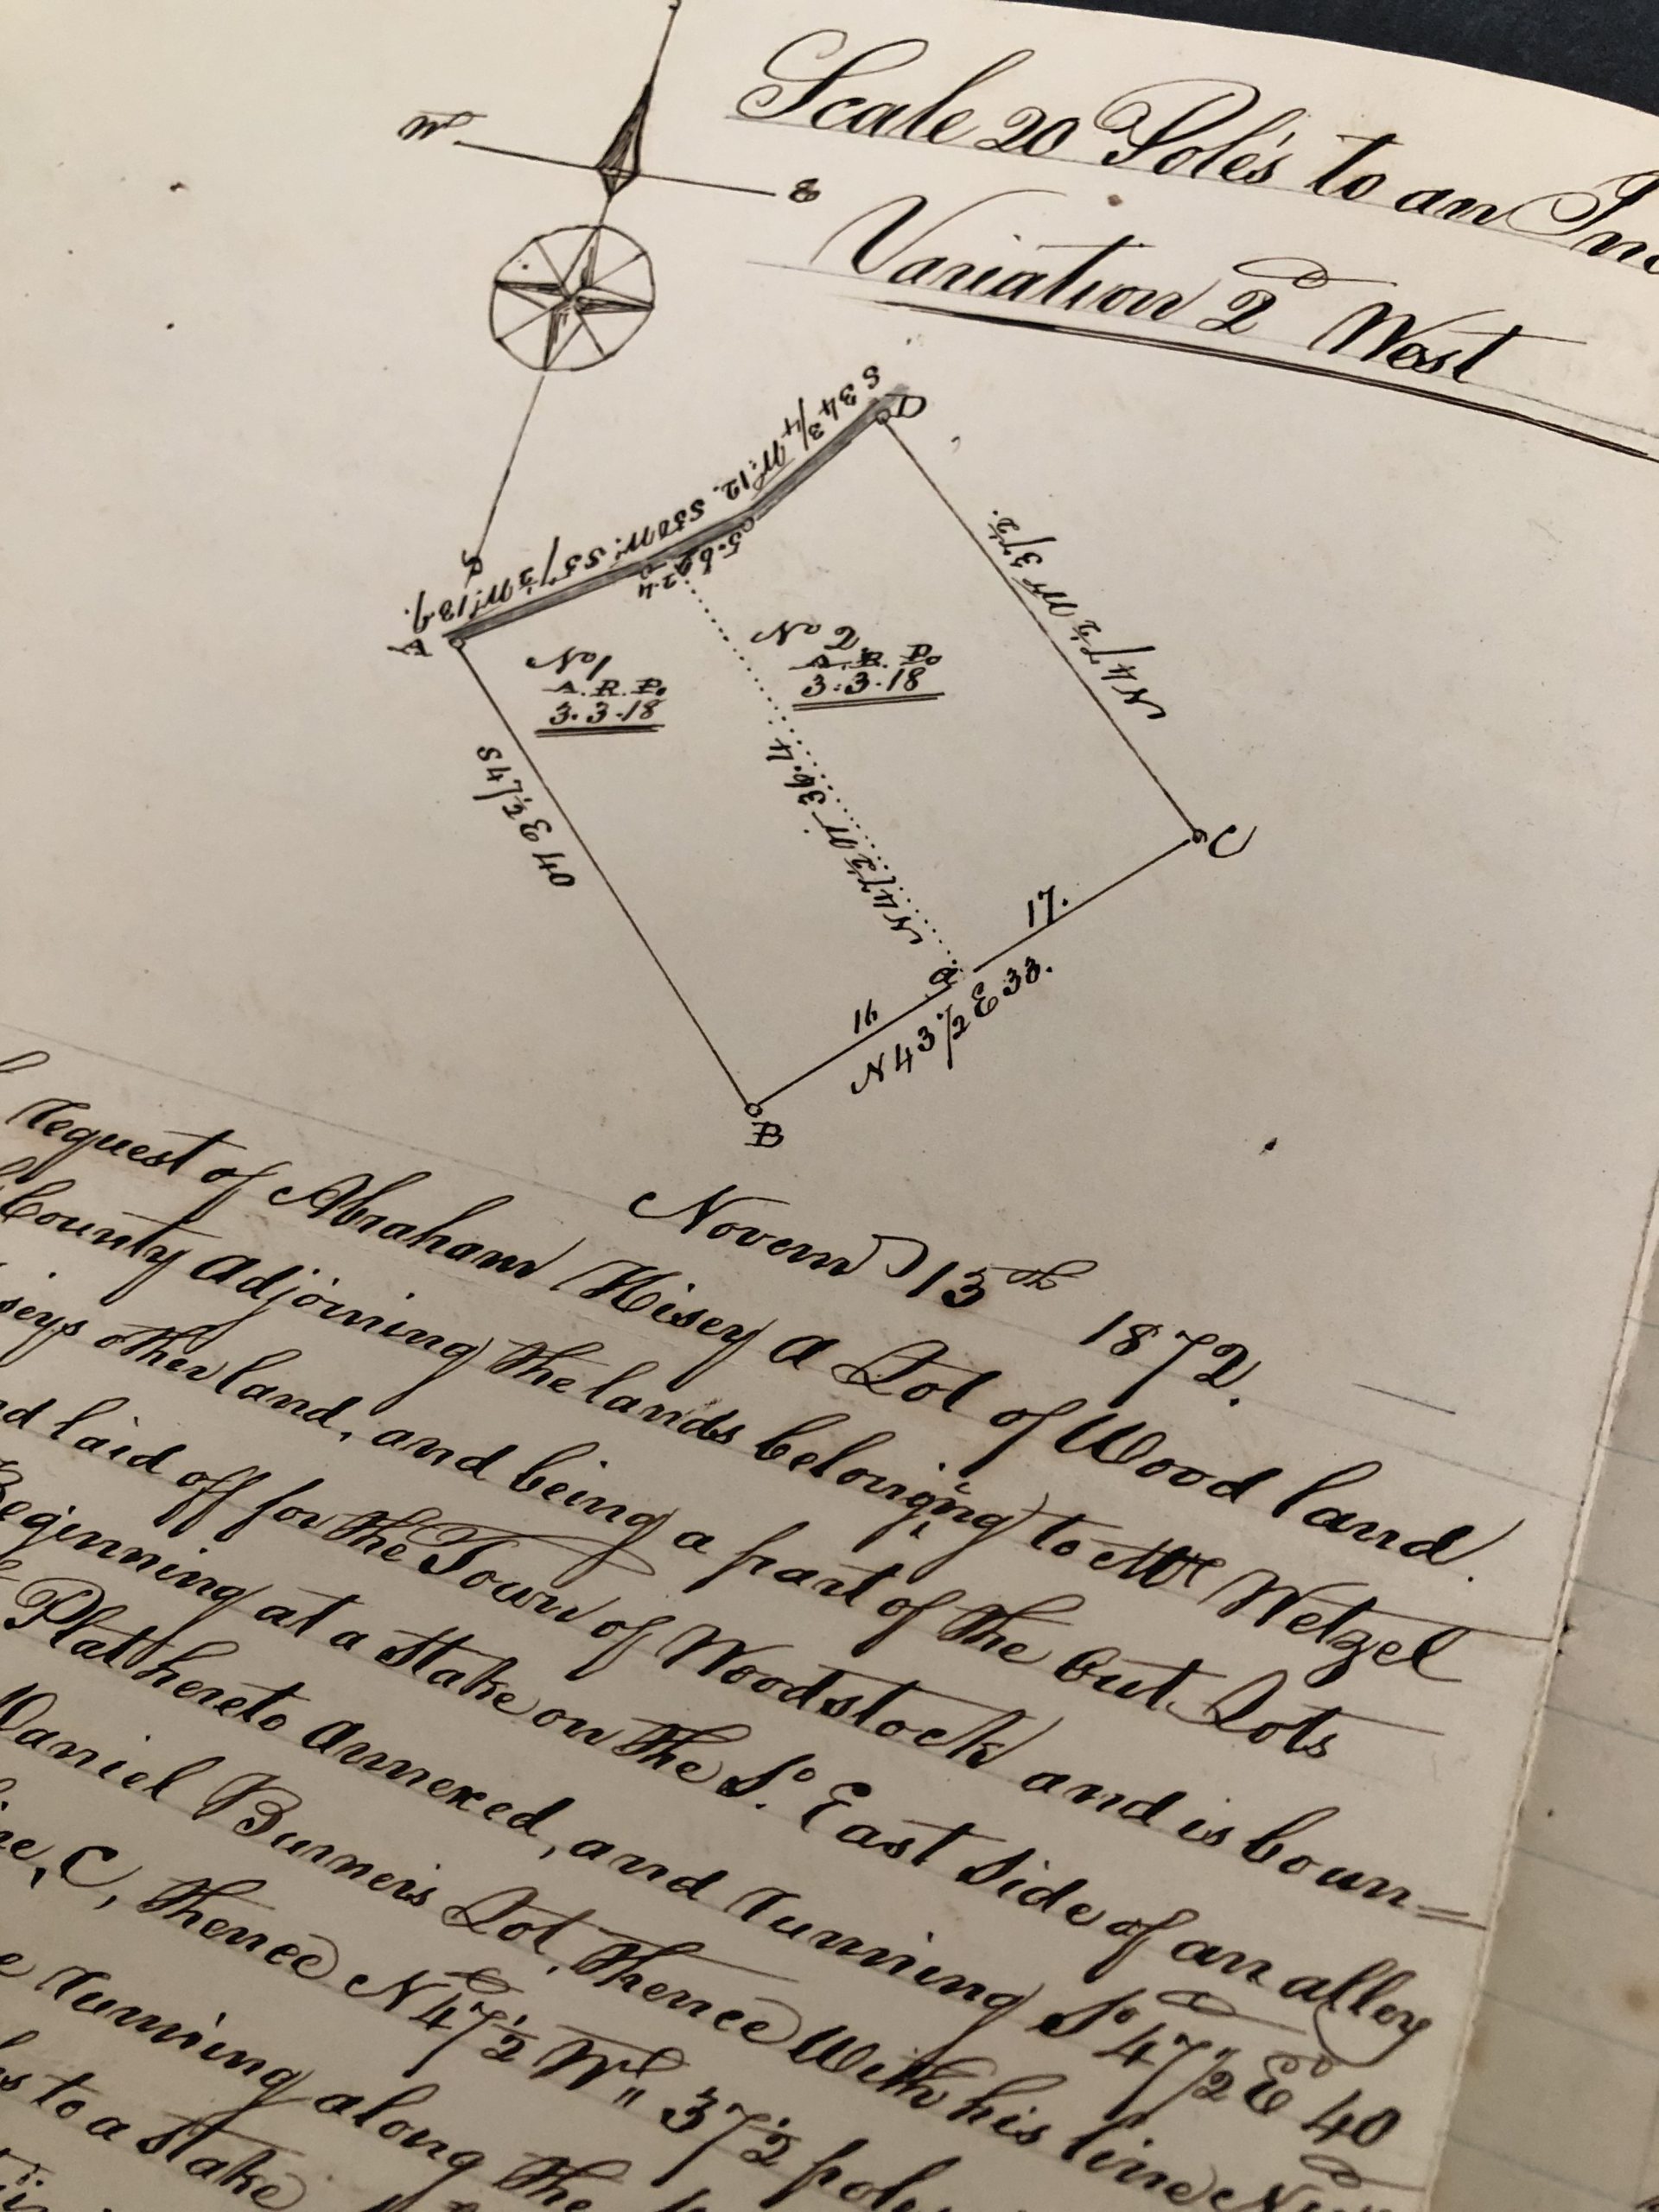 Scale 20 Poles to an In
Variation 2° West
W
E
S
S 34 3/4 W: 12.
S50W:
S 55 1/2 W: 13.9.
A
D
5.6
2.4
No 1
A. R. Po
3. 3. 18
No 2.
A. R. Po
3: 3. 18
N 47 1/2 W 37 1/2.
S 47 1/2 E 40
N 47 1/2 W 36.4
C
17.
a
16
N 43 1/2 E 33.
B
Novem 13th 1872.
request of Abraham Hisey a Lot of Wood land.
County Adjoining the lands belonging to Mr Wetzel
seys other land, and being a part of the Out Lots
d laid off for the Town of Woodstock and is boun=
Beginning at a Stake on the So East Side of an alley
Plat hereto Annexed, and running So 47 1/2 E 40
Daniel Burners Lot, thence With his line N
C, thence N 47 1/2 W 37 1/2 pole
running along the
to a Stake